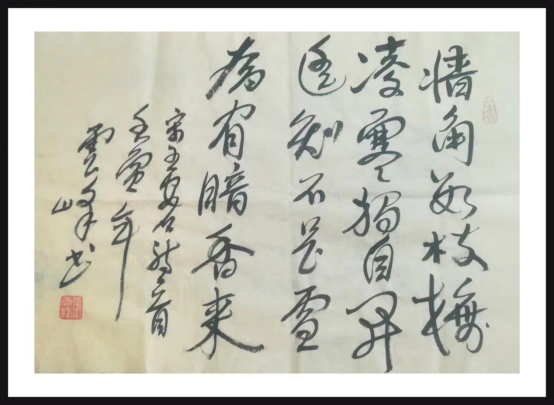 墙角数枝梅
凌寒独自开
遥知不是雪
为有暗香来
宋王安石诗一首
壬寅年
云峰书